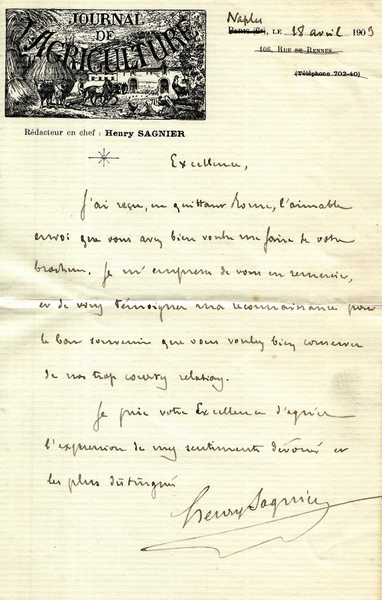 JOURNAL
DE
L'AGRICULTURE
Naples
PARIS (6e), LE 18 avril 1909
106, RUE DE RENNES.
(Téléphone 702-40)
Rédacteur en chef : Henry SAGNIER
Excellence,
J'ai reçu, en quittant Rome, l'aimable
envoi que vous avez bien voulu me faire de votre
brochure. Je m'empresse de vous en remercier,
et de vous témoigner ma reconnaissance pour
le bon souvenir que vous voulez bien conserver
de nos trop courtes relations.
Je prie votre Excellence d'agréer
l'expression de mes sentiments dévoués et
les plus distingués
Henry Sagnier